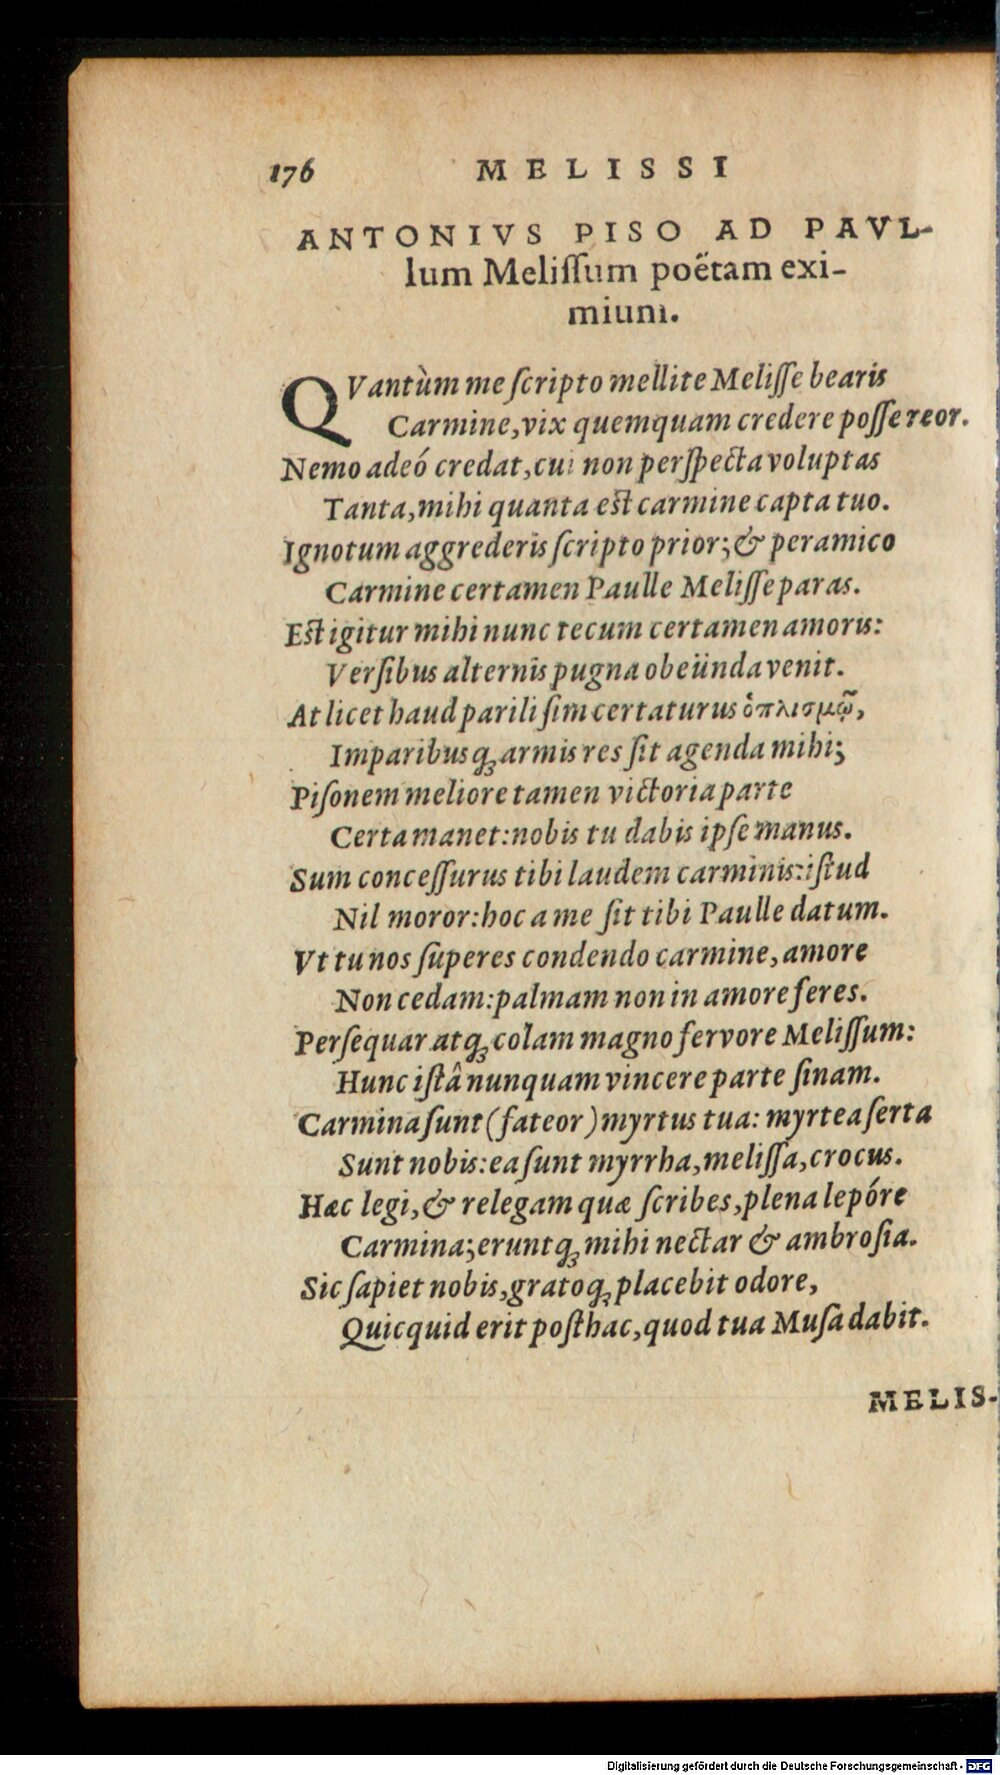 176 MELISSI
ANTONIVS PISO AD PAVL-
lum Meliſſum poëtam exi-
mium.
QVantùm me ſcripto mellite Meliſſe bearis
Carmine, vix quemquam credere poſſe reor.
Nemo adeó credat, cui non perſpecta voluptas
Tanta, mihi quanta est carmine capta tuo.
Ignotum aggrederis ſcripto prior; & peramico
Carmine certamen Paulle Meliſſe paras.
Est igitur mihi nunc tecum certamen amoris:
Verſibus alternis pugna obeünda venit.
At licet haud parili ſim certaturus ὁπλισμῷ,
Imparibusq́ꝫ armis res ſit agenda mihi;
Piſonem meliore tamen victoria parte
Certa manet: nobis tu dabis ipſe manus.
Sum conceſſurus tibi laudem carminis: iſtud
Nil moror: hoc a me ſit tibi Paulle datum.
Vt tu nos ſuperes condendo carmine, amore
Non cedam: palmam non in amore feres.
Perſequar atqꝫ colam magno fervore Meliſſum:
Hunc iſtâ nunquam vincere parte ſinam.
Carmina ſunt (fateor) myrtus tua: myrtea ſerta
Sunt nobis: ea ſunt myrrha, meliſſa, crocus.
Hæc legi, & relegam quæ ſcribes, plena lepóre
Carmina; eruntqꝫ mihi nectar & ambroſia.
Sic ſapiet nobis, gratoqꝫ placebit odore,
Quicquid erit poſthac, quod tua Muſa dabit.
MELIS-
Digitalisierung gefördert durch die Deutsche Forschungsgemeinschaft - DFG